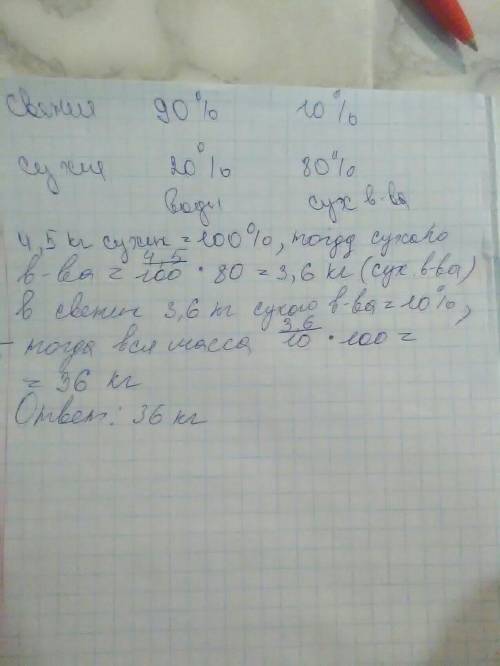 свежих 90% 10%
сухих 20% 80%
воды сух в-ва
4,5 кг сухих = 100%, тогда сухого
в-ва = 4,5/100 · 80 = 3,6 кг (сух. в-ва)
в свежих 3,6 кг сухого в-ва = 10%,
тогда вся масса 3,6/10 · 100 =
= 36 кг
Ответ: 36 кг